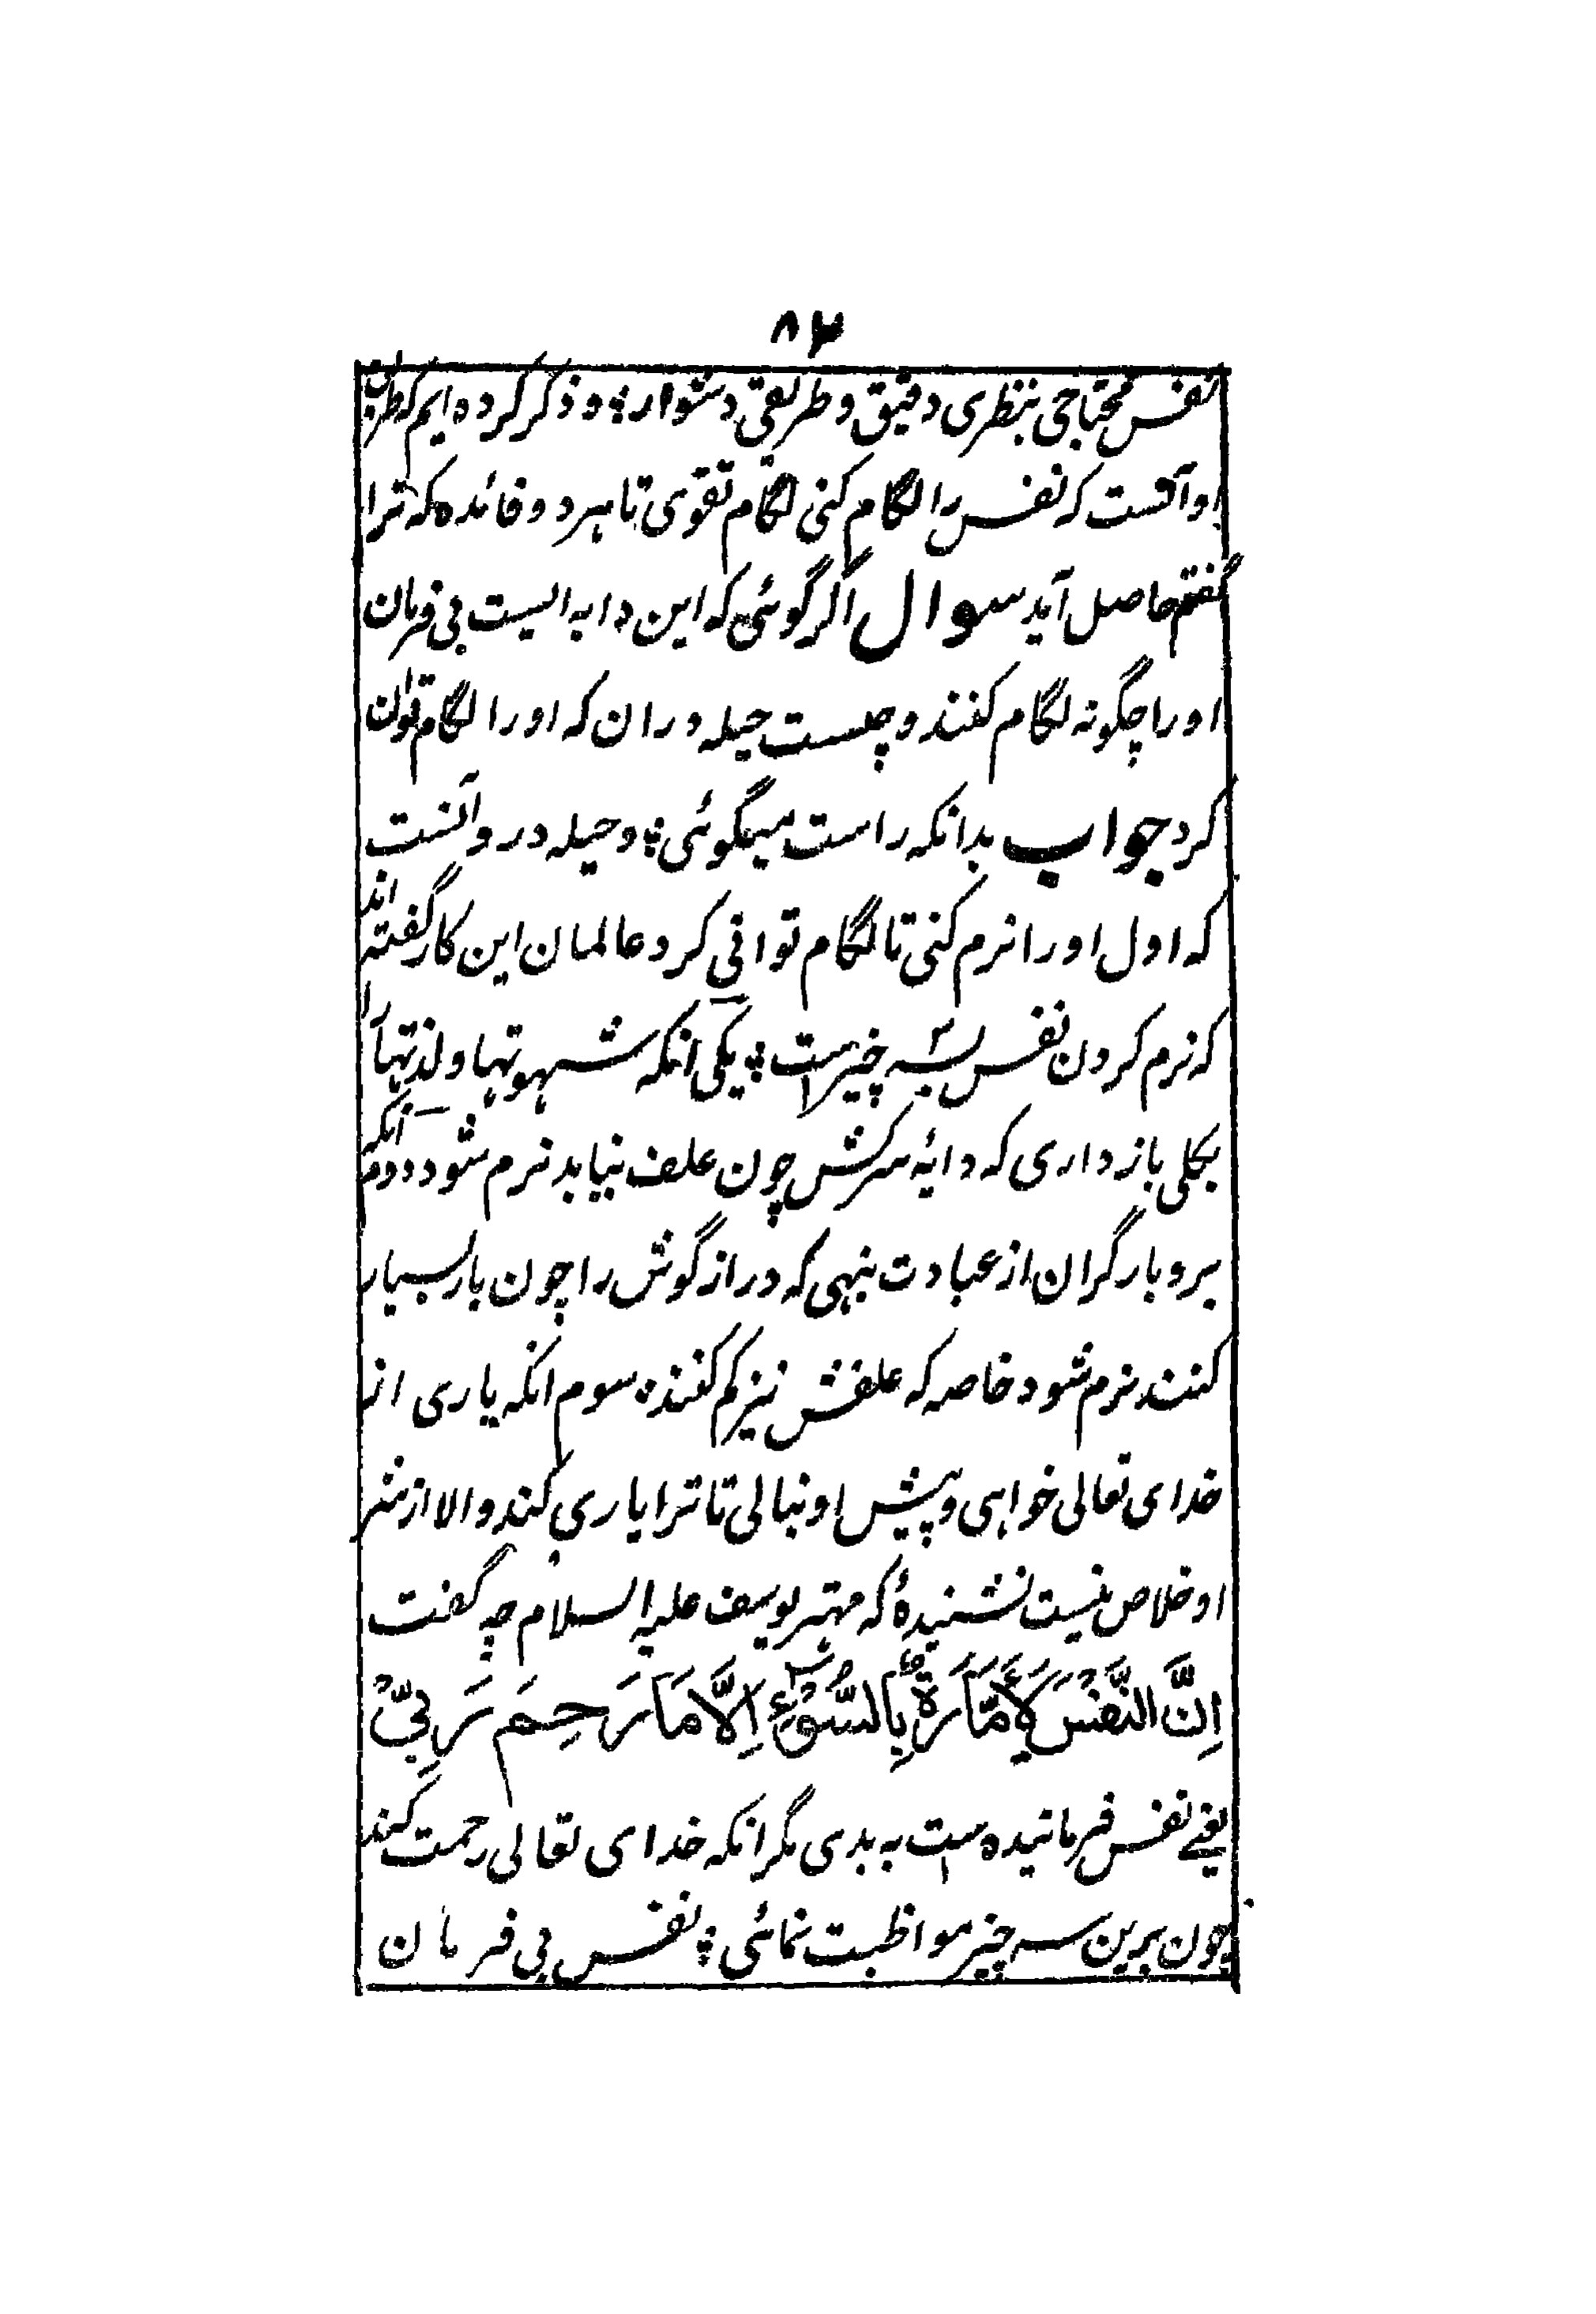 ۸۴
نفس محتاجی بنظری دقیق و طریقی دشوار؛ و ذکر کرده ایم که طریق
او آنست که نفس را لگام کنی لگام تقوی تا هر دو فائده که ترا
گفتم حاصل آید سوال اگر گوئی که این دابه ایست بی فرمان
او را چگونه لگام کنند و چیست حیله دران که او را لگام توان
کرد جواب بدانکه راست میگوئی؛ و حیله درو آنست
که اول او را نرم کنی تا لگام توانی کرد عالمان این کار گفته اند
که نرم کردن نفس بسه چیز است؛ یکی آنکه شهوتها و لذتها را
بکلی باز داری که دابۀ سرکش چون علف نیابد نرم شود دوم آنکه
برو بار گران از عبادت بنهی که دراز گوش را چون بار بسیار
کنند نرم شود خاصه که علفش نیز کم کنند؛ سوم انکه یاری از
خدای تعالی خواهی و پیش او بنالی تا ترا یاری کند و الا از شر
او خلاص نیست نشنیدۀ که مهتر یوسف علیه السلام چه گفت
اِنَّ النَّفْسَ لَاَمَّارَةٌۢ بِالسُّوْٓءِ اِلَّا مَا رَحِمَ رَبِّیْ
یعنے نفس فرمانیده است به بدی مگر انکه خدای تعالی رحمت کند
چون برین سه چیز مواظبت نمائی؛ نفس بی فرمان